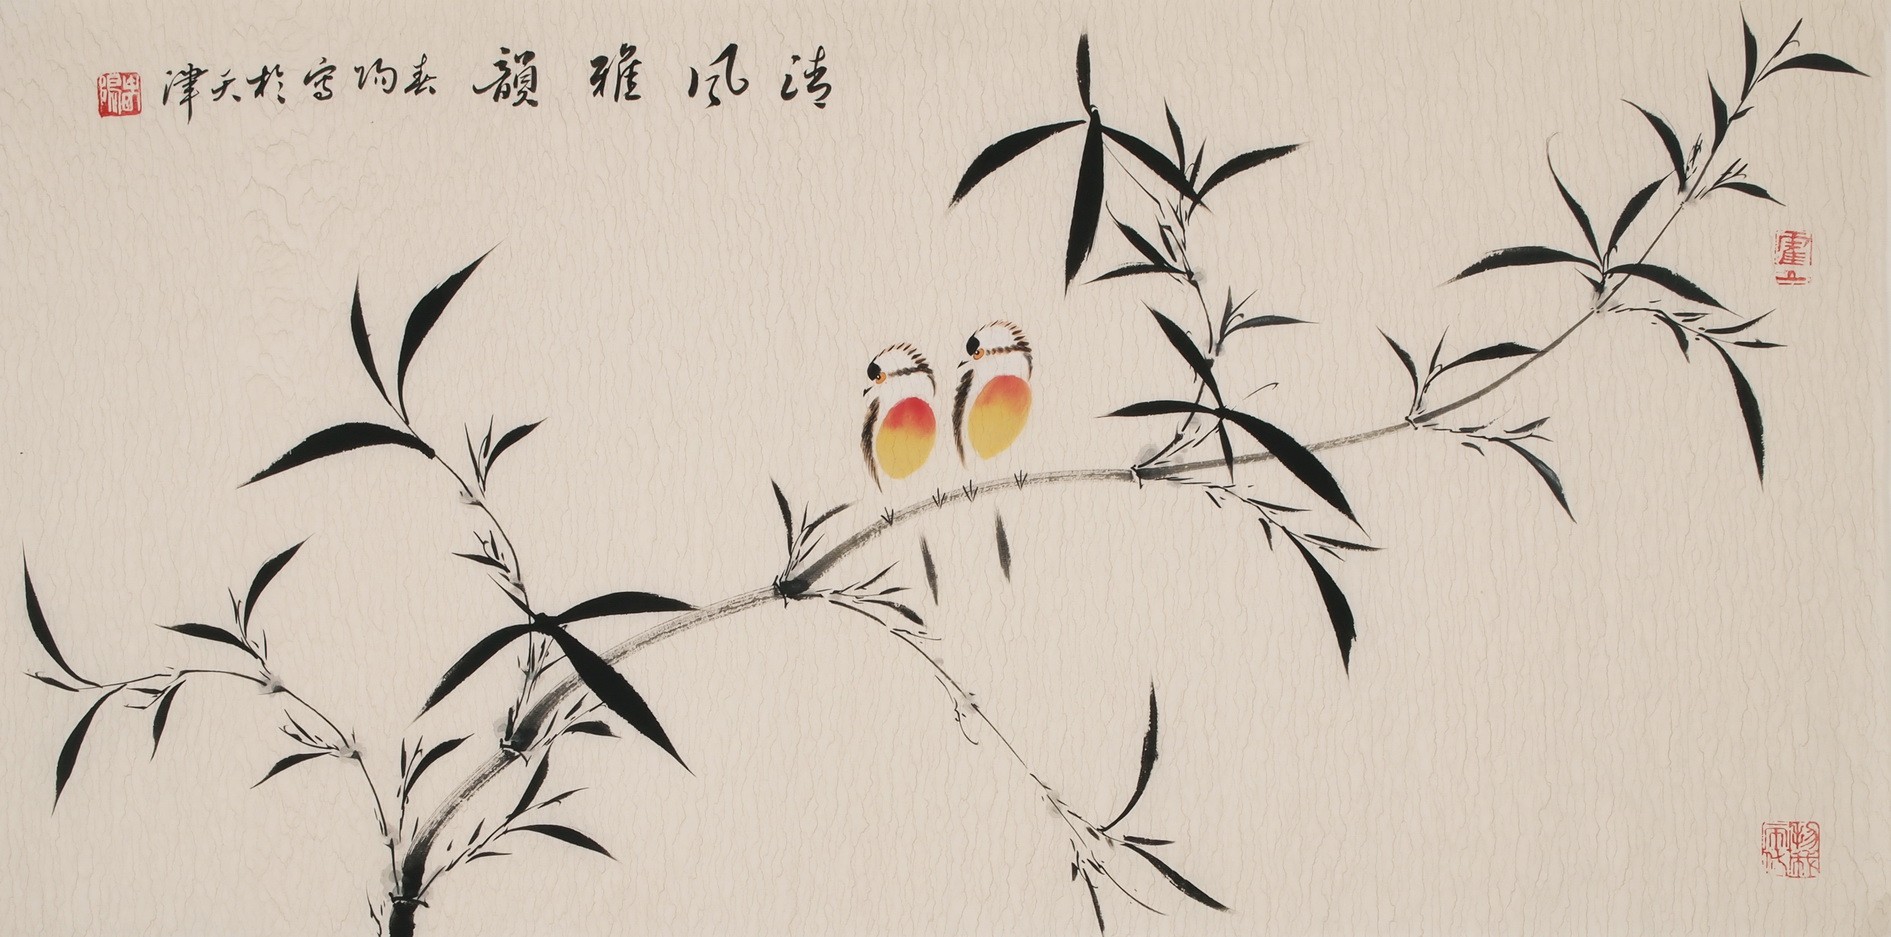 清风雅韻 春陽写於天津